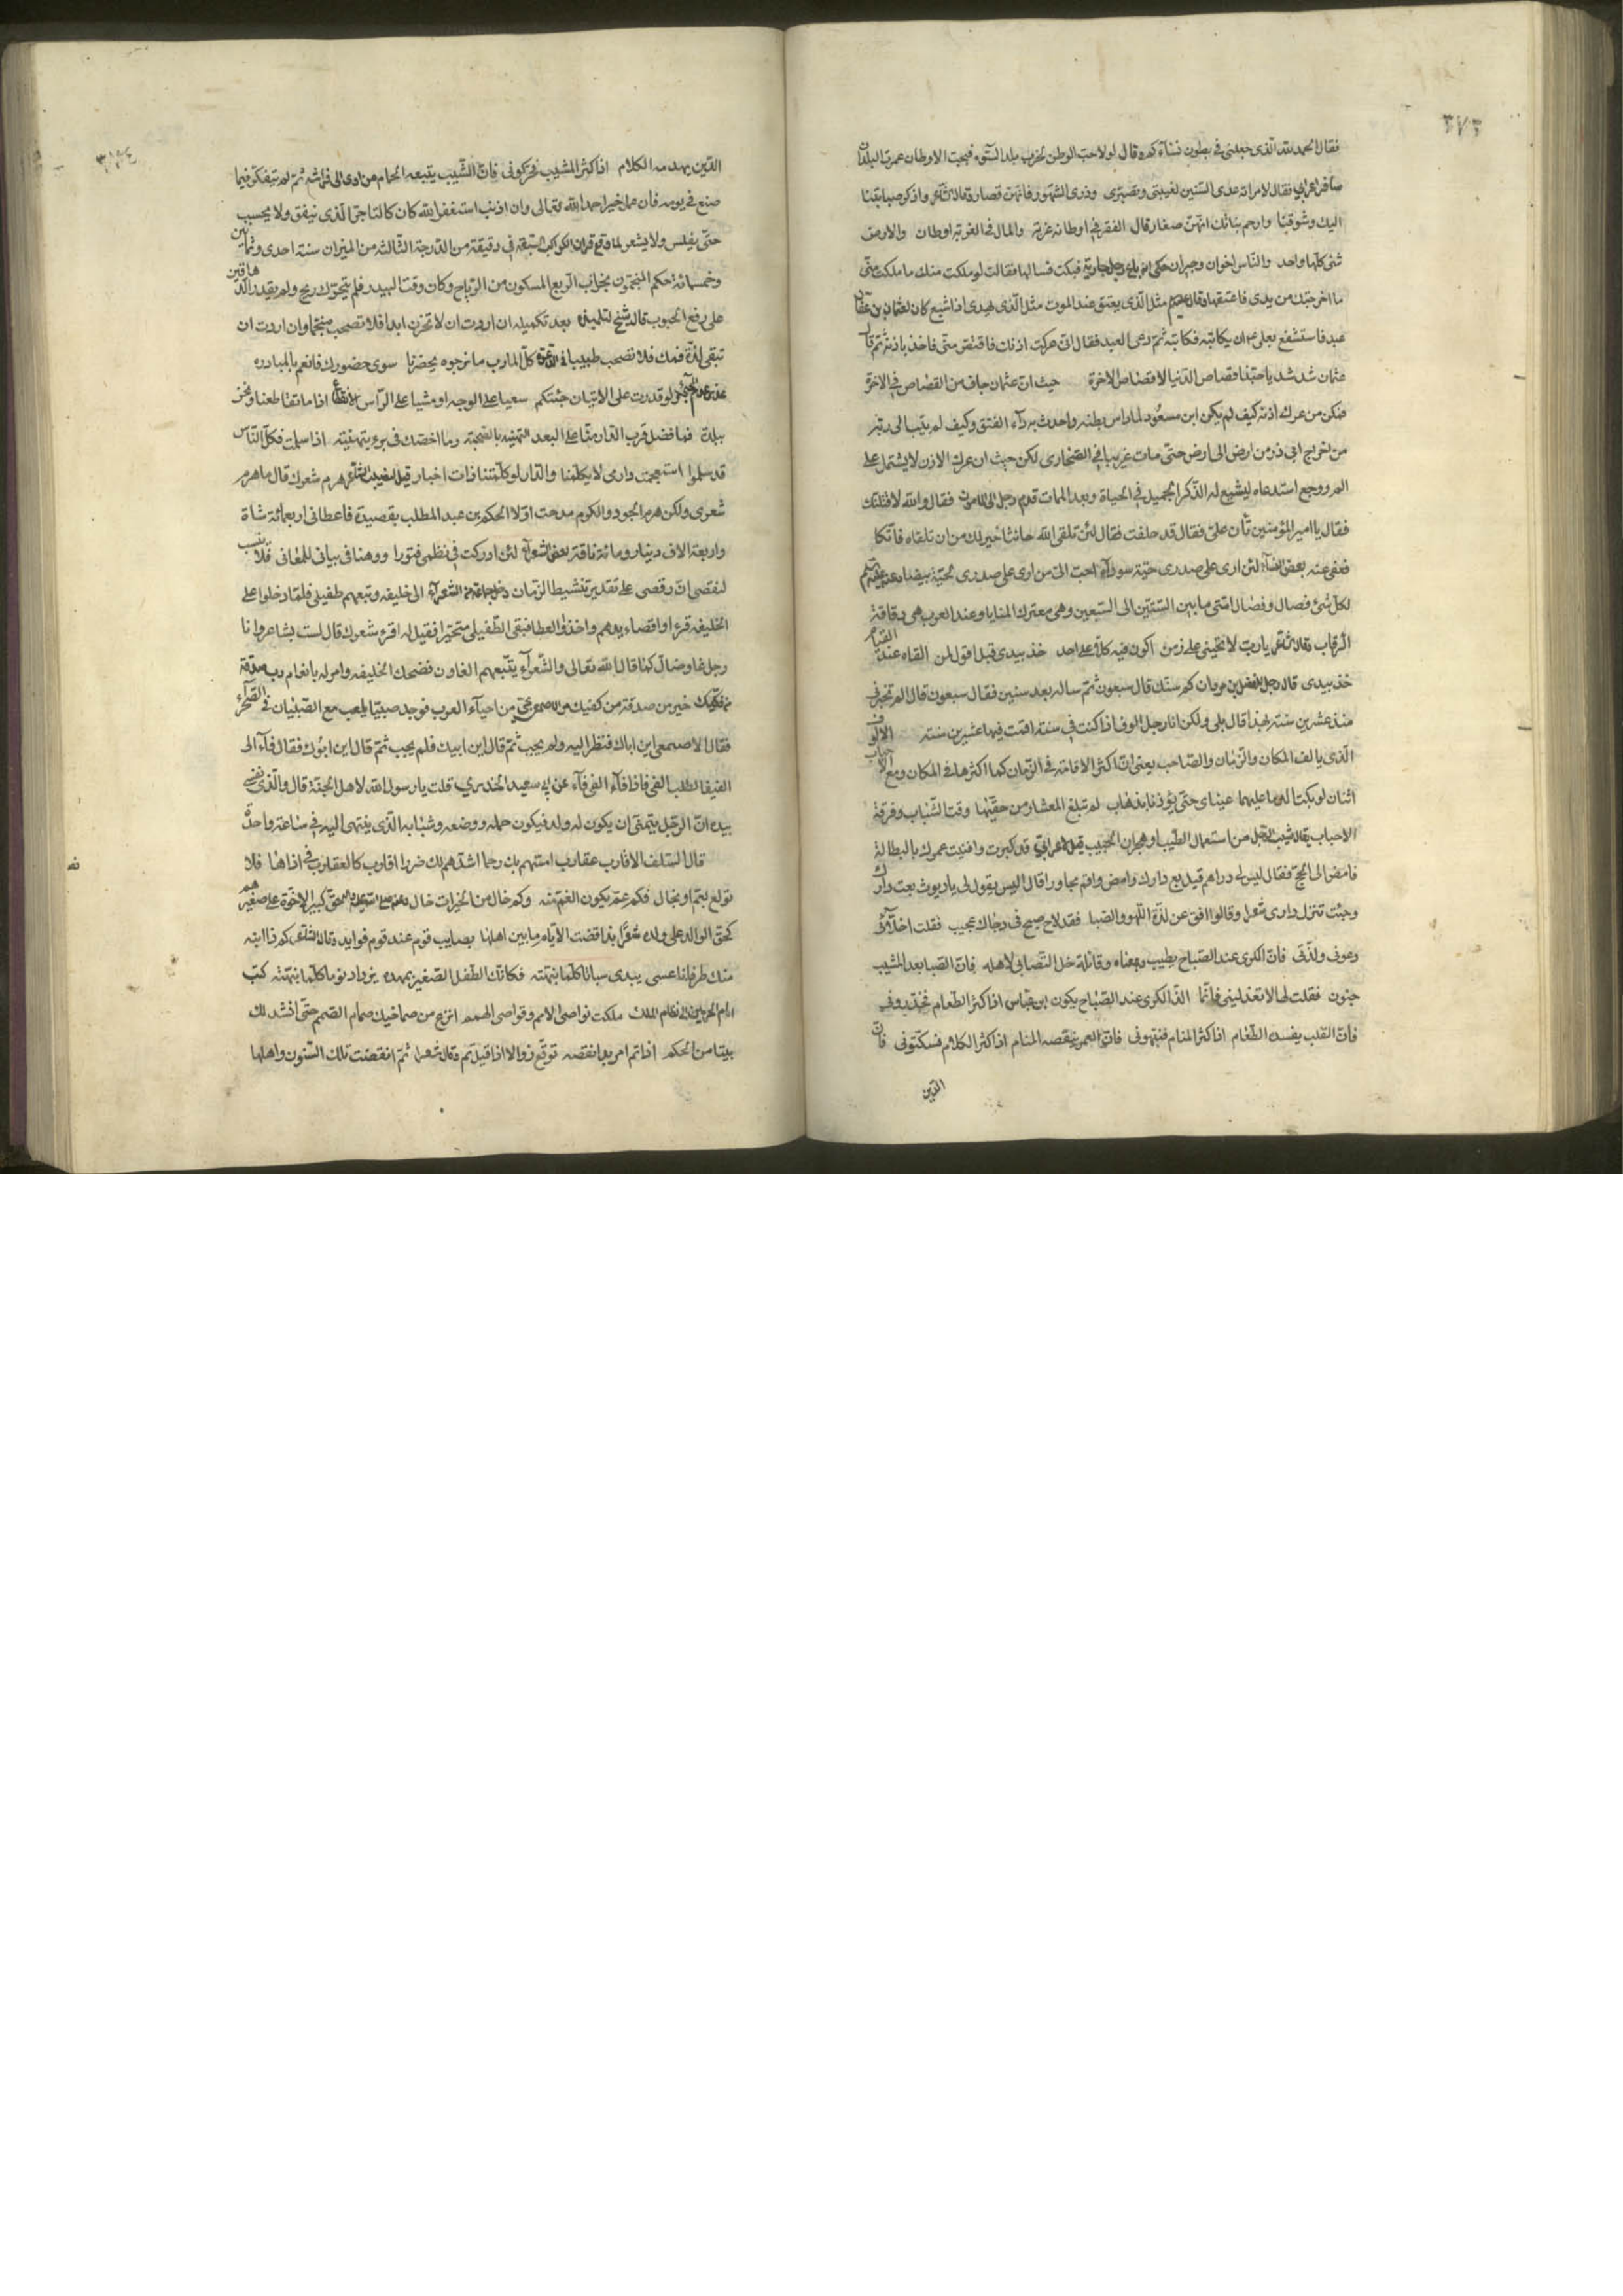 ٣٧٣
فقال الحمد لله الذى جعلنى فى بطون نساء كم وقال لولا حب الوطن لخرب بلد السوء فبحب الاوطان عمرت البلدان
سافر اعرابى فقال لامراته عدى السنين لغيبتى وتصبرى وذرى الشهور فانهن قصار واذكر صبابتنا
اليك وشوقنا وارحم بناتك انهن صغار قال الفقر فى اوطانه غربة والمال فى الغربة اوطان والارض
شئ كلها واحد والناس اخوان وجيران حكى انه باع رجل جارية فبكت فسالها فقالت لو ملكت منك ما ملكت منى
ما اخرجتك من يدى فاعتقها وقال مثل الذى يعتق عند الموت مثل الذى يهدى اذا شبع كان لعثمان بن عفان
عبد فاستشفع بعلى ان يكاتبه فكاتبه ثم دعى العبد فقال انى عركت اذنك فاقتص منى فاخذ باذنه ثم قال
عثمان شد شد يا حبذا قصاص الدنيا لا قصاص الاخرة حيث ان عثمان خاف من القصاص فى الاخرة
من عرك اذنه كيف لم يكن ابن مسعود لما داس بطنه واحدث به داء الفتق وكيف لم يتب الى ربه
من اخراج ابى ذر من ارض الى ارض حتى مات غريبا فى الصحارى لكن حيث ان عرك الاذن لا يشتمل على
الم ووجع استدعاه ليشيع له الذكر الجميل فى الحياة وبعد الممات قدم رجل الى المامون فقال والله لاقتلنك
فقال يا امير المؤمنين تأن على فقال قد حلفت فقال لئن تلقى الله حانثا خير لك من ان تلقاه قاتلا
فعفى عنه بعض النساء لئن ارى على صدرى حية سوداء احب الى من ارى على صدرى لحية بيضاء
لكل شئ فصال وفصال امتى ما بين الستين الى السبعين وهى معترك المنايا وعند العرب هى دقاقة
الرقاب يا رب لا تحينى على زمن اكون فيه كلا على احد خذ بيدى قبل اقول لمن القاه عند القيام
خذ بيدى قال رجل كم سنك قال سبعون ثم ساله بعد سنين فقال سبعون قال الم تخبرنى
منذ عشرين سنة بهذا قال بلى ولكن انا رجل الوف اذا كنت فى سنة اقمت فيها عشرين سنة الالوف
الذى يالف المكان والزمان والصاحب يعنى ان اكثر الاقامة فى الزمان كما اكثرها فى المكان ومع الاحباب
اثنان لو بكت الدما عليهما عيناى حتى يؤذنا بذهاب لم تبلغ المعشار من حقيهما وقت الشباب وفرقة
الاحباب من استعمال الطيب وهجران الحبيب قيل لاعرابى قد كبرت وافنيت عمرك بالبطالة
فامض الى الحج فقال ليس لى دراهم قيل بع دارك وامض واقم مجاورا قال اليس يقول لى يا ديوث بعت دارك
وجئت تنزل دارى شعر وقالوا افق عن لذة اللهو والصبا فقد لاح صبح فى دجاك عجيب فقلت اخلاى
دعونى ولذتى فان الكرى عند الصباح يطيب وبمعناه وقائلة خل التصابى لاهله فان الصبا بعد المشيب
جنون فقلت لها لا تعذلينى فانما الذ الكرى عند الصباح يكون ابن عباس اذا كثر الطعام فحذرونى
فان القلب يفسد الطعام اذا كثر المنام فنبهونى فان العمر ينقصه المنام اذا كثر الكلام فسكتونى فان
الدين
٣٧٤
الدين يهدمه الكلام اذا كثر المشيب فحركونى فان الشيب يتبعه الحمام من اوى الى فراشه ثم لم يتفكر فيما
صنع فى يومه فان عمل خيرا حمد الله تعالى وان اذنب استغفر الله كان كالتاجر الذى ينفق ولا يحسب
حتى يفلس ولا يشعر لما وقع قران الكواكب السبعة فى دقيقة من الدرجة الثالثة من الميزان سنة احدى وثمانين
وخمسمائة حكم المنجمون بخراب الربع المسكون من الرياح وكان وقت البيدر فلم يتحرك ريح ولم يقدر الدهاقين
على رفع الحبوب قال شيخ لتلميذه بعد تكميله ان اردت ان لا تحزن ابدا فلا تصحب منجما وان اردت ان
تبقى لذة فمك فلا تصحب طبيبا كل المارب ما نرجوه يحضرنا سوى حضورك فانعم بالمبادره
ولو قدرت على الاتيان جئتكم سعيا على الوجه او مشيا على الراس اذا ما تقاطعنا ونحن
ببلدة فما فضل قرب الدار منا على البعد وما اخصك فى برء بتهنئة اذا سلمت فكل الناس
قد سلموا استعجمت دارى لا يكلمنا والدار لو كلمتنا ذات اخبار قيل لنصيب الشاعر هرم شعرك قال ما هرم
شعرى ولكن هرم الجود والكرم مدحت اولا الحكم بن عبد المطلب بقصيدة فاعطانى اربعمائة شاة
واربعة الاف دينار ومائة ناقة بعض الشعراء لئن ادركت فى نظمى فتورا ووهنا فى بيانى للمعانى فلا تنسب
لنقصى ان رقصى على تقدير تنشيط الزمان دخل جماعة من الشعراء الى خليفة وتبعهم طفيلى فلما دخلوا على
الخليفة قرءوا قصائدهم واخذوا العطا فبقى الطفيلى متحيرا فقيل له اقرء شعرك قال لست بشاعر وانا
رجل غاو ضال كما قال الله تعالى والشعراء يتبعهم الغاون فضحك الخليفه وامر له بانعام رب صدقة
من فكيك خير من صدقة من كفيك من احياء العرب فوجد صبيا يلعب مع الصبيان فى الصحراء
فقال الاصمعى اين اباك فنظر اليه ولم يجب ثم قال اين ابيك فلم يجب ثم قال اين ابوك فقال فاء الى
الفيفا لطلب الفى فاذا فاء الفى فاء عن ابى سعيد الخدرى قلت يا رسول الله لاهل الجنة قال والذى نفسى
بيده ان الرجل يتمنى ان يكون له ولد فيكون حمله ووضعه وشبابه الذى ينتهى اليه فى ساعة واحدة
قال السلف الاقارب عقارب امسهم بك رحما اشدهم لك ضررا اقارب كالعقارب فى اذاها فلا
تولع بعم او بخال فكم عم يكون الغم منه وكم خال من الخيرات خال حق كبير الاخوة على صغيرهم
كحق الوالد على ولده شعر بذا قضت الايام ما بين اهلها مصايب قوم عند قوم فوايد وقال الشاعر كم ذا انبه
منك طرفا ناعسى يبدى سباتا كلما نبهته فكانك الطفل الصغير بمهده يزداد نوما كلما نبهته كتب
امام الحرمين الى نظام الملك ملكت نواصى الامم وقواصى الهمم اخرج من صماخيك صمام الصمم حتى انشد لك
بيتا من الحكم اذا تم امر بدا نقصه توقع زوالا اذا قيل تم وقال شعرا ثم انقضت تلك السنون واهلها